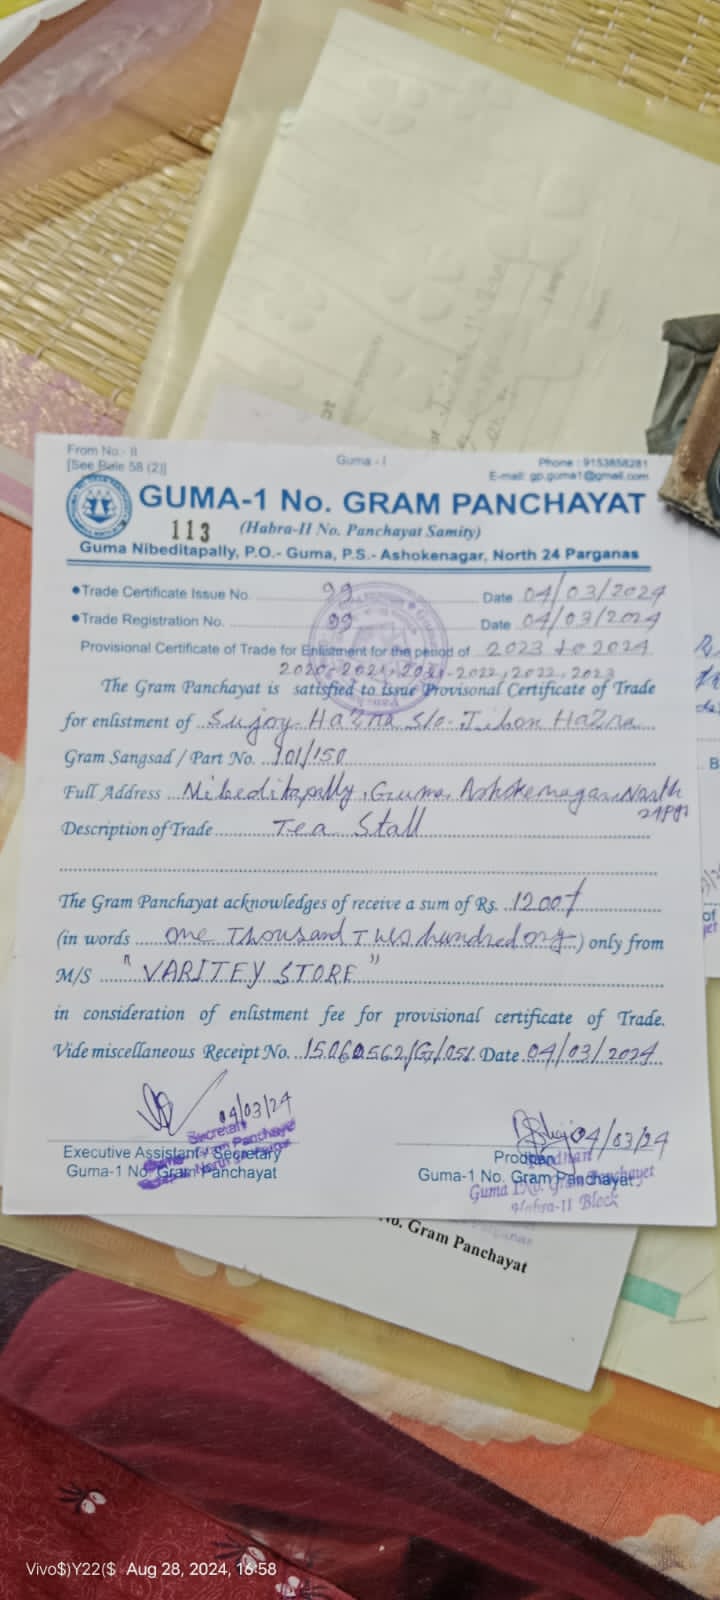 From No:- II
[See Rule 58 (2)]
Guma - I
Phone : 9153858281
E-mail: gp.guma1@gmail.com
GUMA-1 No. GRAM PANCHAYAT
113 (Habra-II No. Panchayat Samity)
Guma Nibeditapally, P.O.- Guma, P.S.- Ashokenagar, North 24 Parganas
•Trade Certificate Issue No. 99 Date 04/03/2024
•Trade Registration No. 99 Date 04/03/2024
Provisional Certificate of Trade for Enlistment for the period of 2023 to 2024
2020-2021, 2021-2022, 2022, 2023
The Gram Panchayat is satisfied to issue Provisonal Certificate of Trade
for enlistment of Sujoy Hazra s/o- Jibon Hazra
Gram Sangsad / Part No. 101/150
Full Address Nibeditapally, Guma, Ashokenagar, North
24pgs
Description of Trade Tea Stall
The Gram Panchayat acknowledges of receive a sum of Rs. 1200/
(in words one Thousand Two hundred only) only from
M/S "VARITEY STORE"
in consideration of enlistment fee for provisional certificate of Trade.
Vide miscellaneous Receipt No. 15060562/G/051 Date 04/03/2024
04/03/24
04/03/24
Secretary
Executive Assistant / Secretary
Guma-1 No. Gram Panchayat
Prodhan
Guma-1 No. Gram Panchayat
Prodhan
Guma 1 No. Gram Panchayet
Habra-II Block
No. Gram Panchayat
Vivo$)Y22($ Aug 28, 2024, 16:58